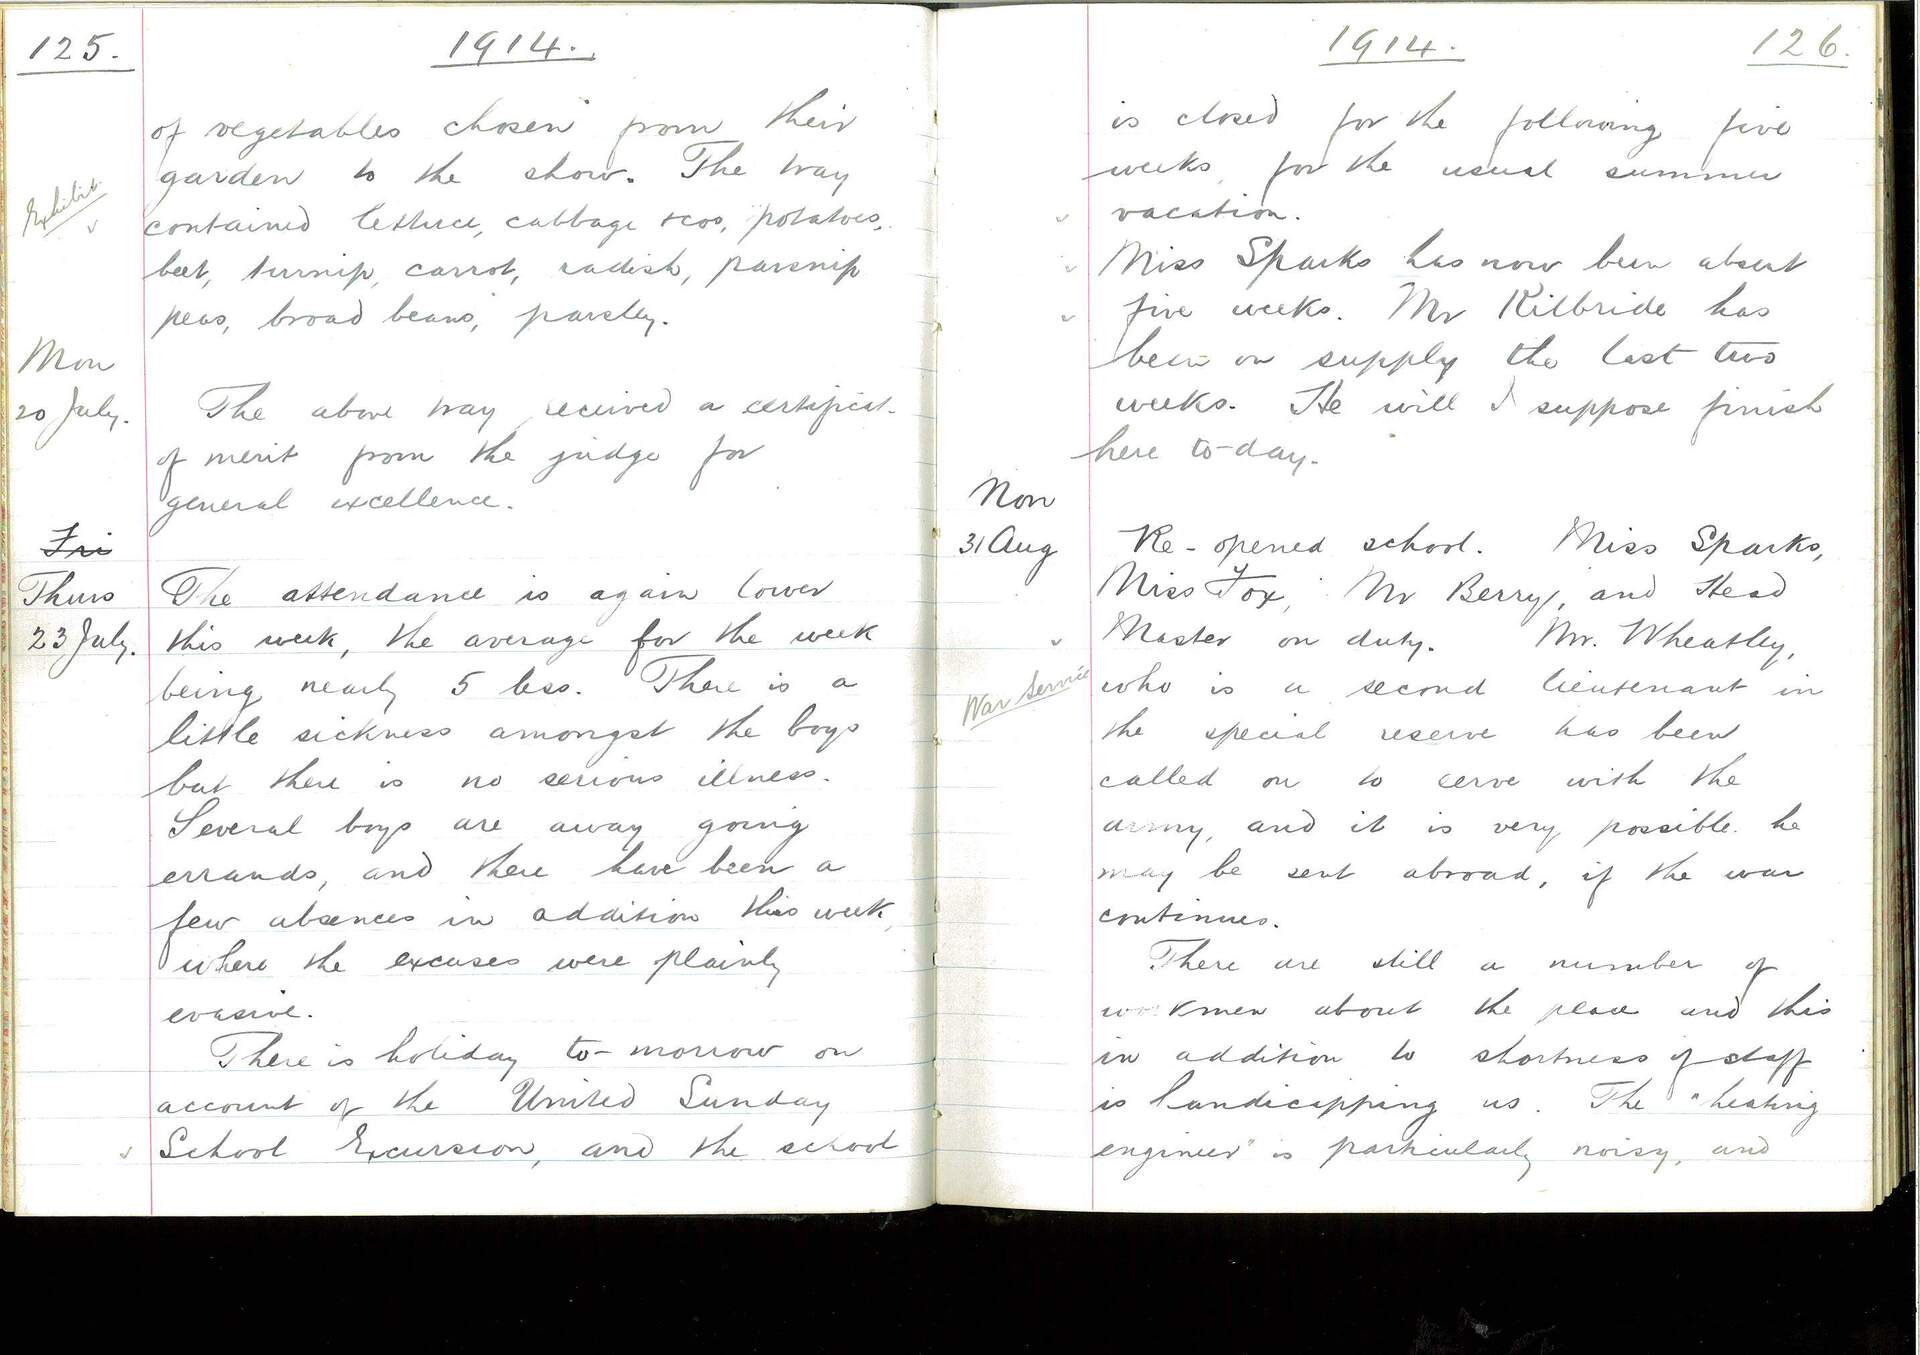 125.
1914.
of vegetables chosen from their
garden to the show. The tray
Exhibit.
contained lettuce, cabbage & cos, potatoes,
beet, turnip, carrot, radish, parsnip
peas, broad beans, parsley.
Mon
20 July.
The above tray received a certificat-
of merit from the judge for
general excellence.
Fri
Thurs
23 July.
The attendance is again lower
this week, the average for the week
being nearly 5 less. There is a
little sickness amongst the boys
but there is no serious illness.
Several boys are away going
errands, and there have been a
few absences in addition this week,
where the excuses were plainly
evasive.
There is holiday to-morrow on
account of the United Sunday
School Excursion, and the school
1914.
126.
is closed for the following five
weeks for the usual summer
vacation.
Miss Sparks has now been absent
five weeks. Mr Kilbride has
been on supply the last two
weeks. He will I suppose finish
here to-day.
Mon
31 Aug
Re-opened school. Miss Sparks,
Miss Fox, Mr Berry, and Head
Master on duty. Mr. Wheatley,
War Service
who is a second lieutenant in
the special reserve has been
called on to serve with the
army, and it is very possible he
may be sent abroad, if the war
continues.
There are still a number of
workmen about the place and this
in addition to shortness of staff
is handicapping us. The "heating
engineer" is particularly noisy, and